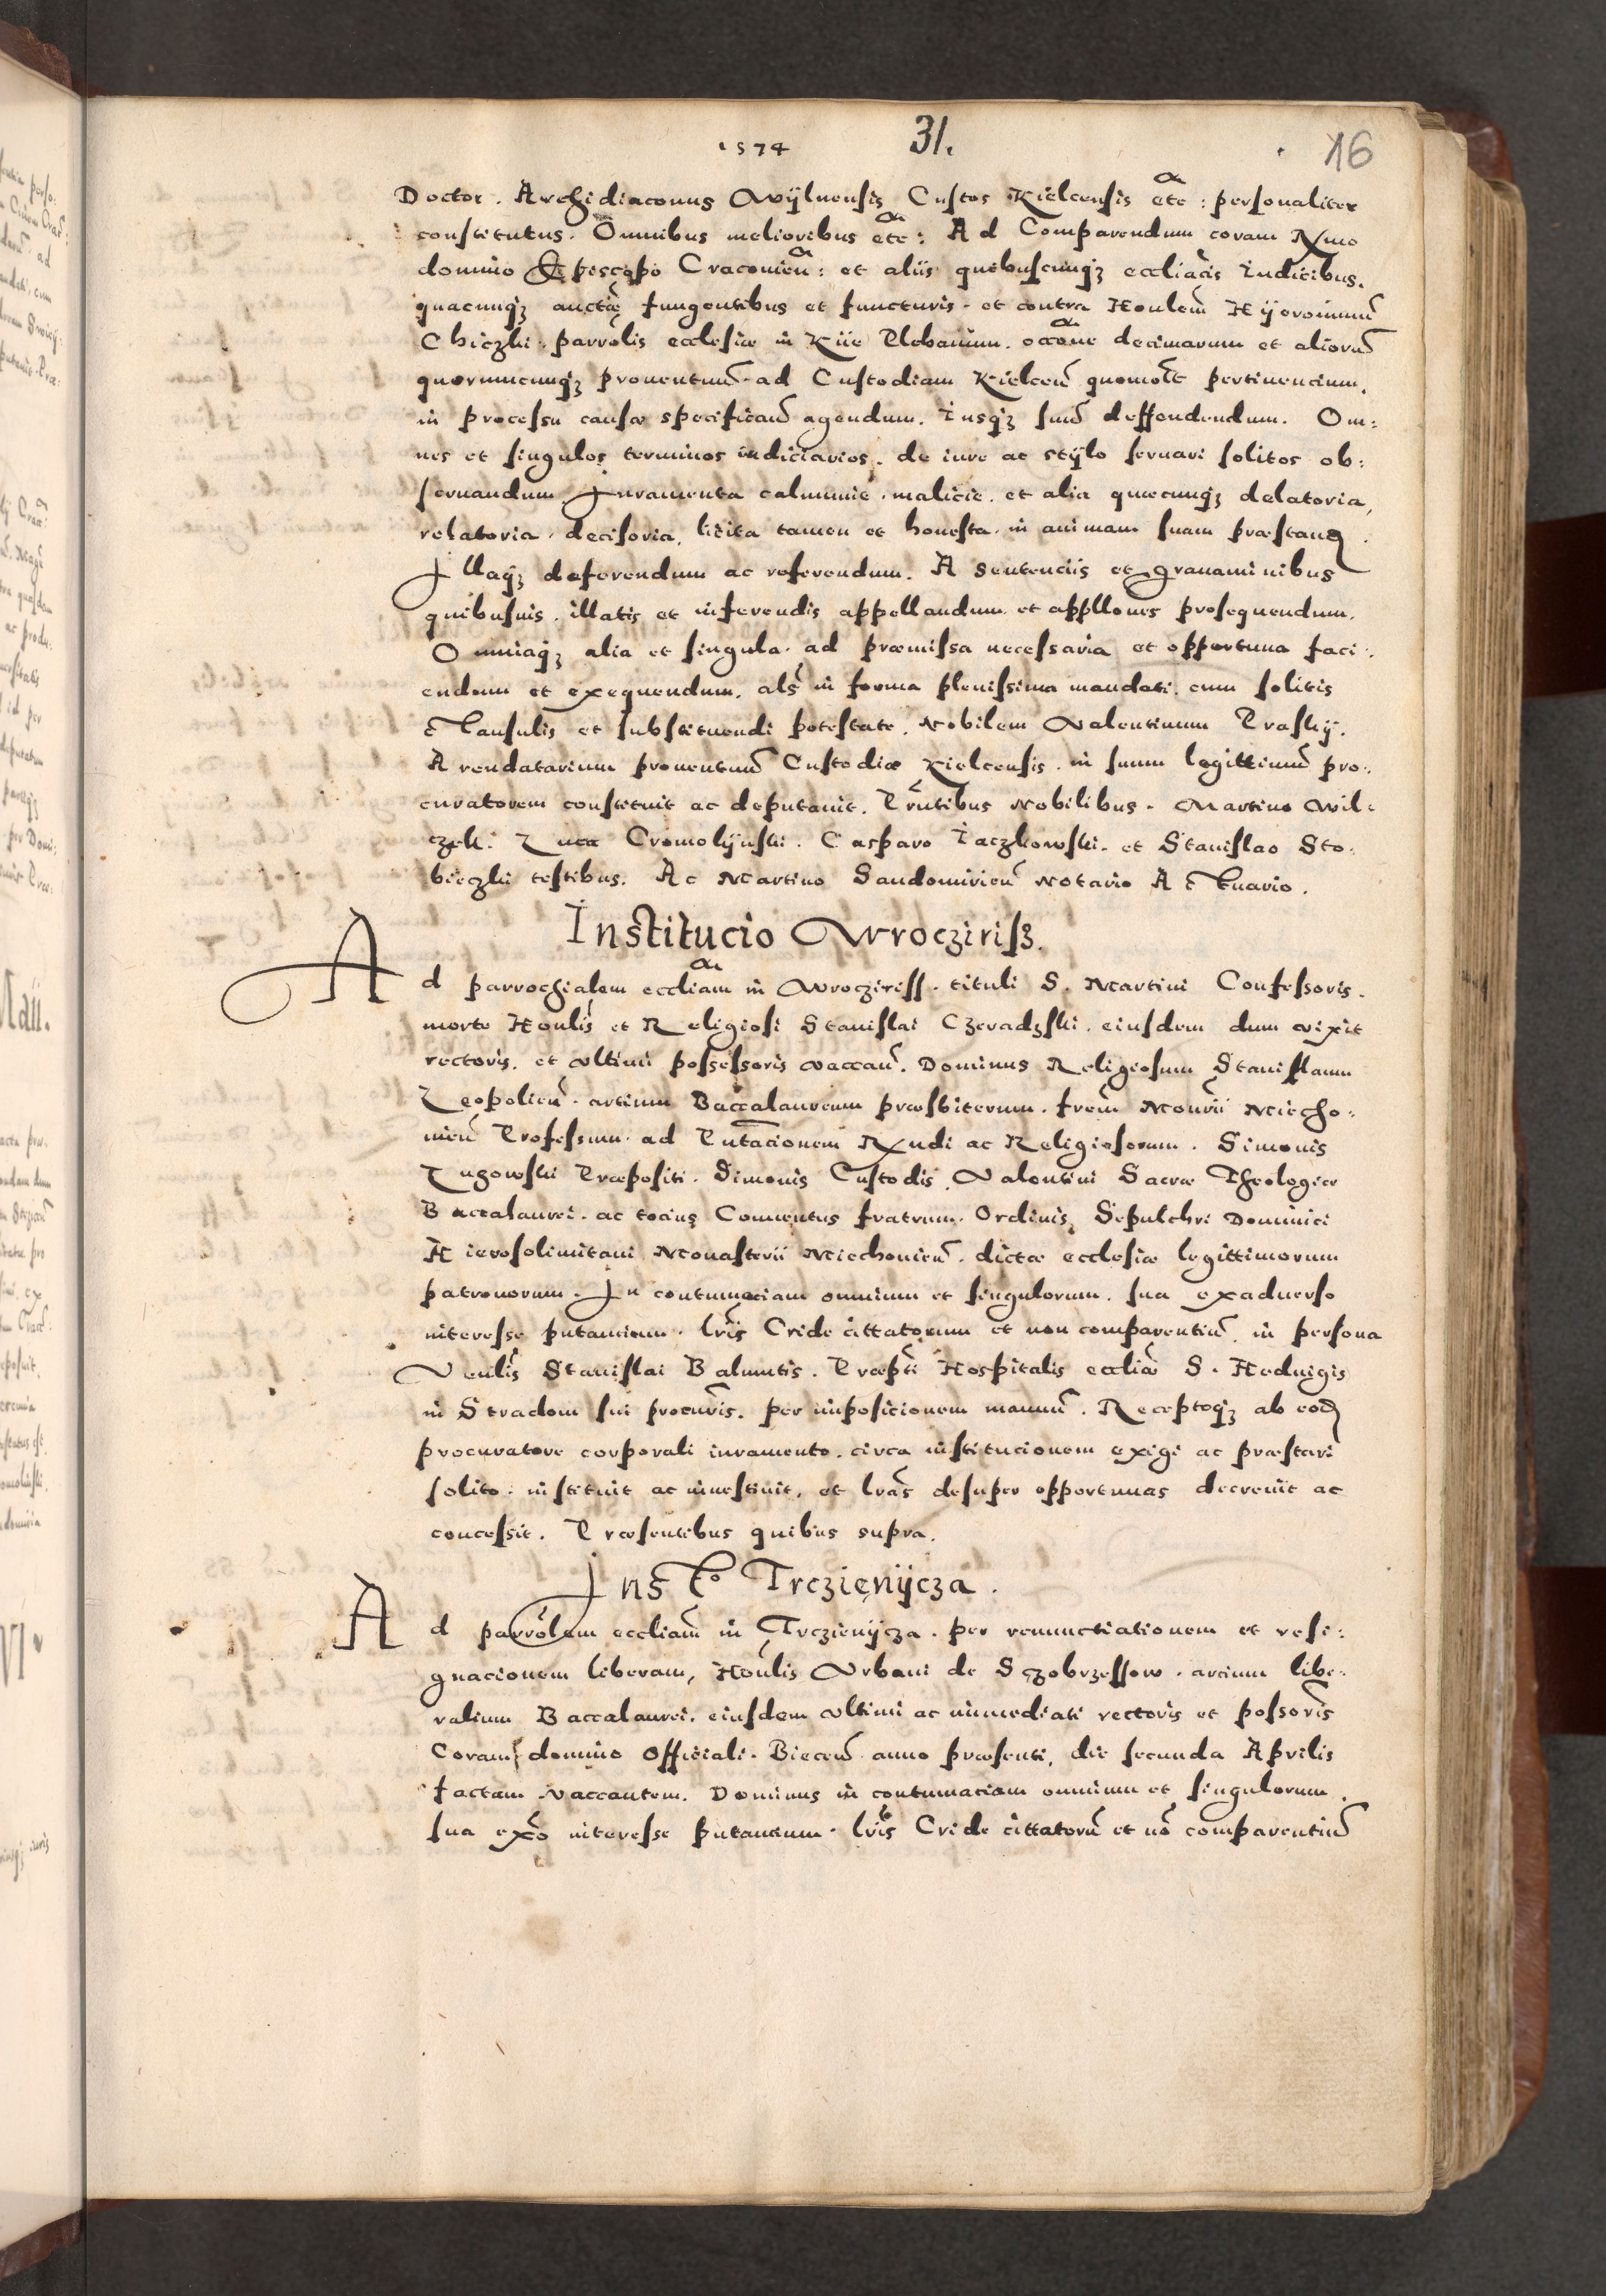 1574 31. 16
Doctor. Archidiaconus Wÿlnensis Custos Kielcensis etc: personaliter
constitutus. Omnibus melioribus etc: Ad Comparendum coram Rmo
domino Episcopo Cracouień: et aliis quibuscunqz eccliacis Iudicibus.
quacunqz auctē fungentibus et functuris. et contra Honlem Hÿeronimū
Chiczki. parrolis ecclesiæ in Kiie Plebanum. occone decimarum et aliorū
quorumcunqz prouentuū ad Custodiam Kielceń quomolt pertinencium.
in processu causæ specificań agendum. Iusqz suū deffendendum. Om:
nes et singulos terminos iudiciarios. de iure ac stÿlo seruari solitos ob:
seruandum. Iuramenta calumnie. malicie. et alia quæcunqz delatoria,
relatoria. decisoria, licita tamen et honesta. in animam suam præstand.
Illaqz deferendum ac referendum. A sentenciis et grauaminibus
quibusuis. illatis et inferendis appellandum. et appllones prosequendum.
Omniaqz alia et singula. ad præmissa necessaria et opportuna faci:
endum et exequendum. als in forma plenissima mandati. cum solitis
Clausulis et substituendi potestate. Nobilem Valentinum Praskÿ.
Arendatarium prouentuū Custodiæ Kielcensis. in suum legittimū pro:
curatorem constituit ac deputauit. Pntibus Nobilibus. Martino Wil:
czek. Luca Cromolÿnski. Casparo Iaczkowski. et Stanislao Sto:
bieczki testibus. Ac Martino Sandomirień Notario Actuario.
Institucio Wrocziriß.
Ad parrochialem eccliam in Wrocziriss. tituli S. Martini Confessoris.
morte Honlis et Religiosi Stanislai Czeradzski. eiusdem dum vixit
rectoris. et vltimi possessoris vaccań. Dominus Religiosum Stanislaum
Leopolień. artium Baccalaureum præsbiterum. frem Monrii Miecho:
uień Professum. ad Pntacionem Rndi ac Religiosorum. Simonis
Lugowski Præpositi. Simonis Custodis. Valentini Sacræ Theologiæ
Baccalaurei. ac tocius Conuentus fratrum. Ordinis Sepulchri Dominici
Hierosolimitani Monasterii Miechouień. dictæ ecclesiæ legittimorum
patronorum. In contumaciam omnium et singulorum. sua exaduerso
interesse putancium. lris Cride cittatorum et non comparentiū. in persona
Venlis Stanislai Baluntis. Præpti Hospitalis eccliæ S. Heduigis
in Stradom sui procuris. per imposicionem manuū. Receptoqz ab eod
procuratore corporali iuramento. circa institucionem exigi ac præstari
solito. instituit ac inuestiuit. et lras desuper opportunas decreuit ac
concessit. Præsentibus quibus supra.
Inst͠o Trczienÿcza.
Ad parrolem eccliam in Trczienÿcza. per renunctiationem et resi:
gnacionem liberam, Honlis Vrbani de Sczobrzessow. artium libe:
ralium Baccalaurei. eiusdem vltimi ac immediati rectoris et possoris
Coram domino Officiali. Bieceń anno præsenti, die secunda Aprilis
factam vaccantem. Dominus in contumaciam omnium et singulorum.
sua exo interesse putantium. lris Cride cittatorū et nō comparentiū